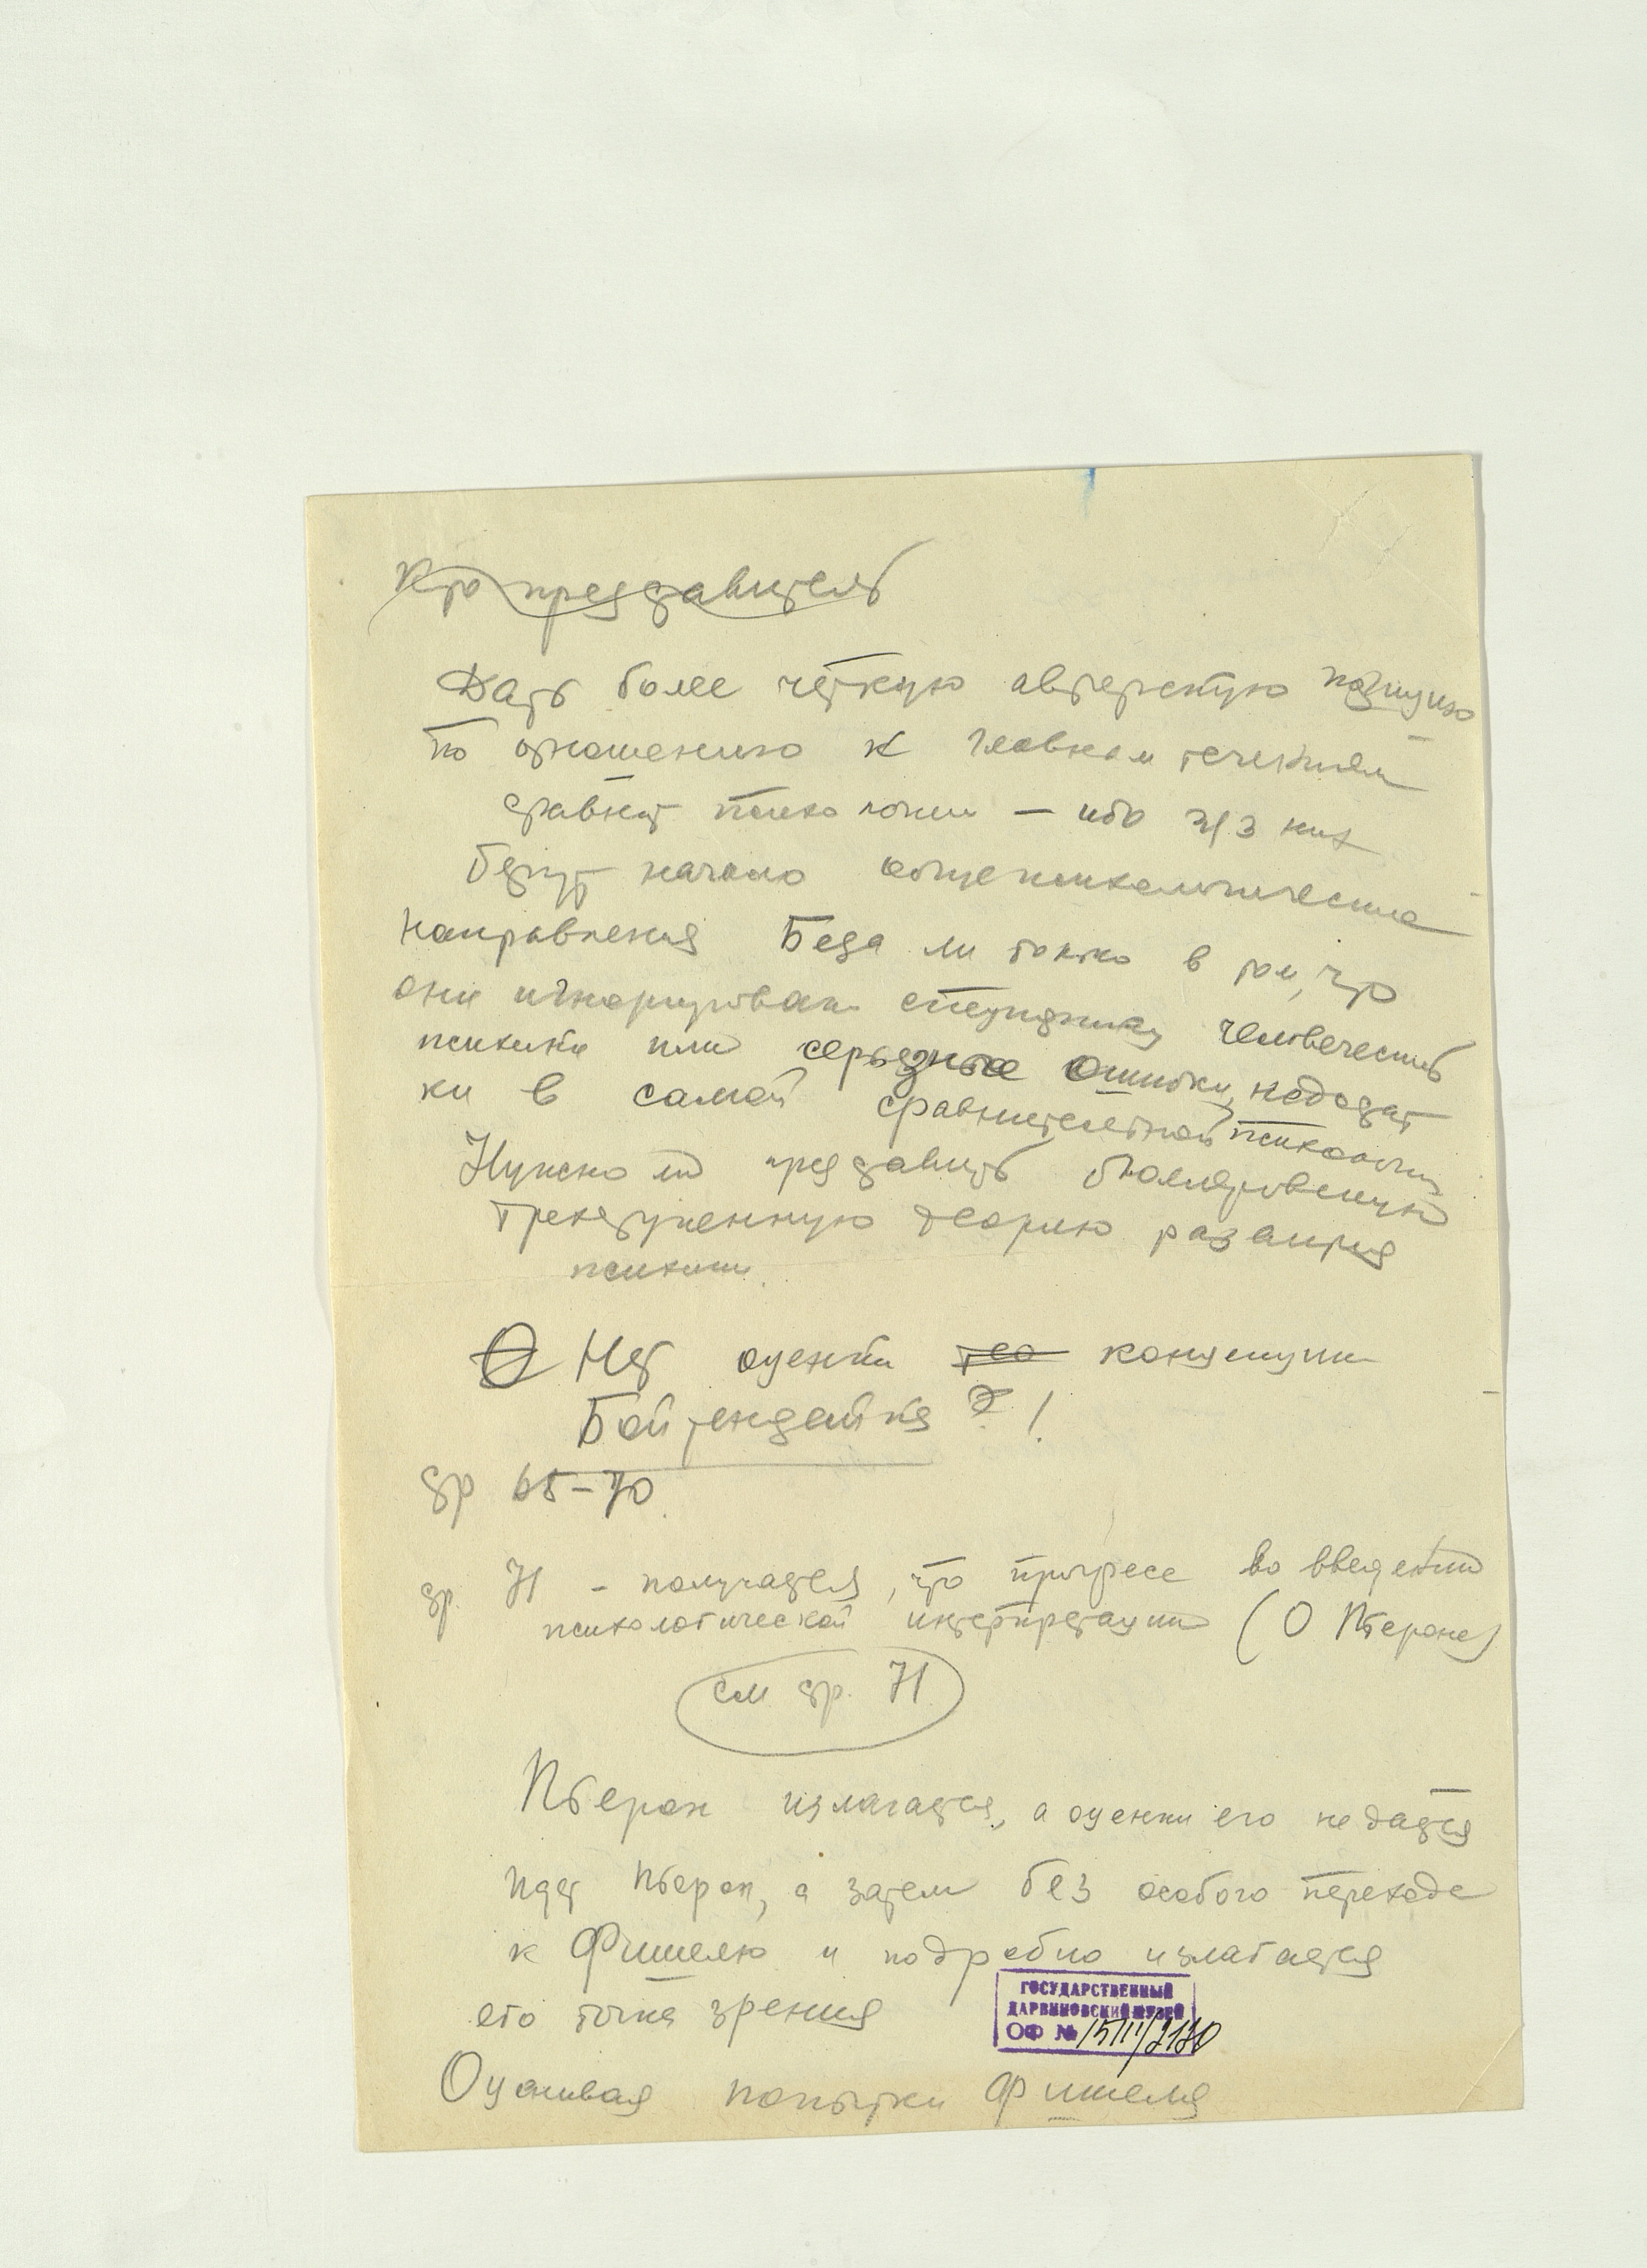 Кто представитель
Дать более чёткую авторскую позицию
по отношению к главным течениям
сравнит психологии — ибо из них
берут начало общепсихологические
направления Беда ли только в том, что
они игнорировали специфику человеческой
психики или серьезные ошибки, недостат
ки в самой сравнительной психологии
Нужно ли представить бюллеровскую
трехступенную теорию развития
психики.
Нет оценки тео концепции
Бойтендайка ? !
стр 65–70.
стр. 71 – получается, что прогресс во введении
психологической интерпретации (О Пьероне)
см стр. 71
Пьерон излагается, а оценки его не дается
Идет Пьерон, а затем без особого перехода
к Фишелю и подробно излагается
его точка зрения
ГОСУДАРСТВЕННЫЙ
ДАРВИНОВСКИЙ МУЗЕЙ
ОФ №
Оценивая попытки Фишеля